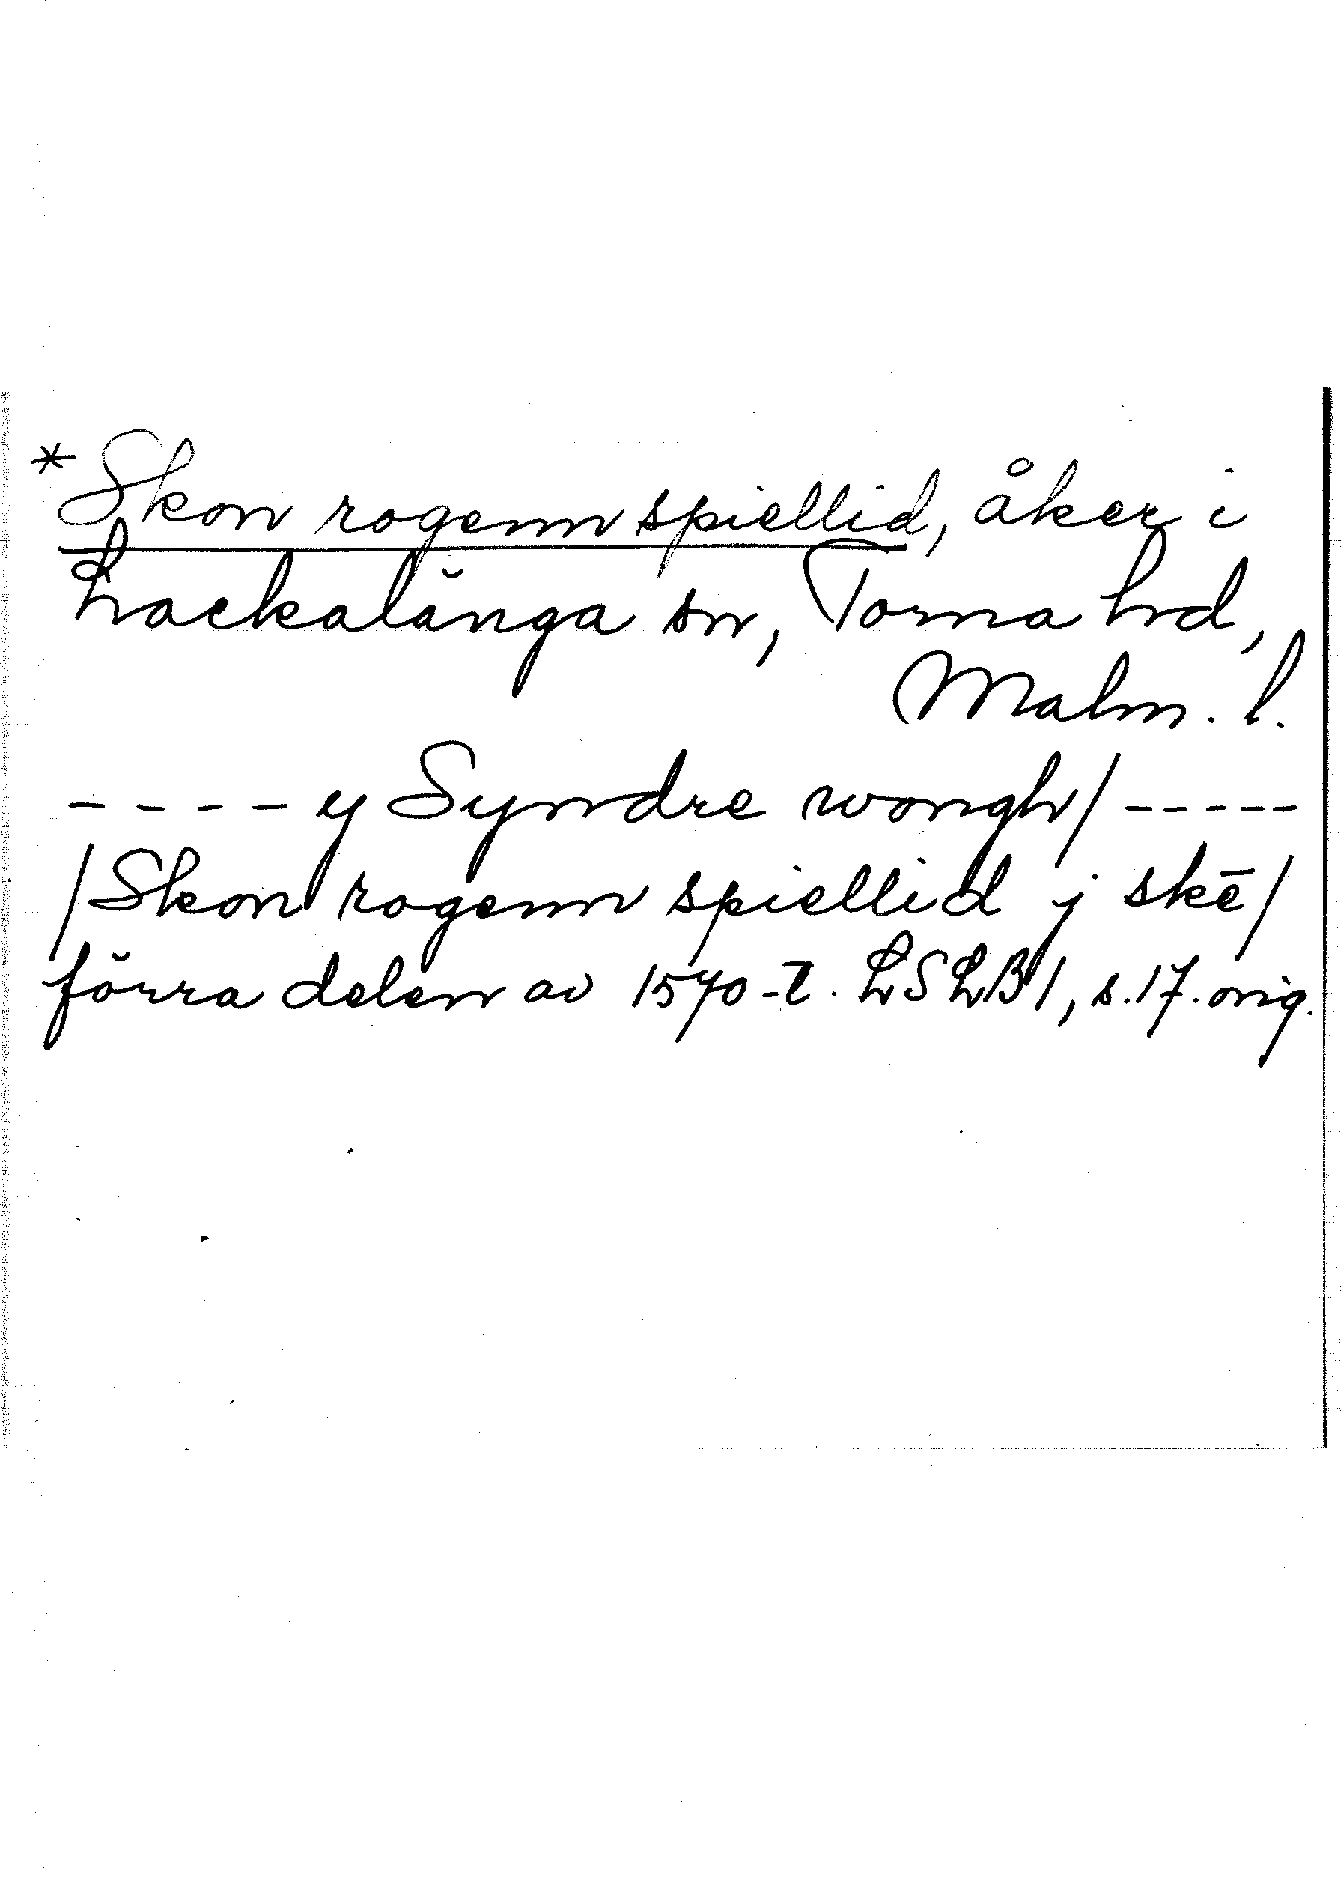 *Skon rogenn spiellid, åker i
Lackalänga sn, Torna hd,
Malm. l.
- - - - y Syndre wongh/ - - - - -
/Skon rogenn spiellid j skē/
förra delen av 1570-t. LSLB 1, s. 17. orig.